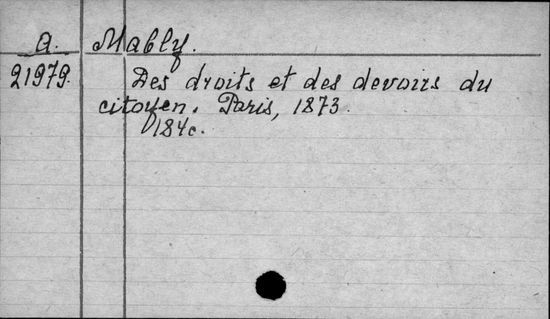 A. Mably.
21979. Des droits et des devoirs du
citoyen. Paris, 1873.
184c.